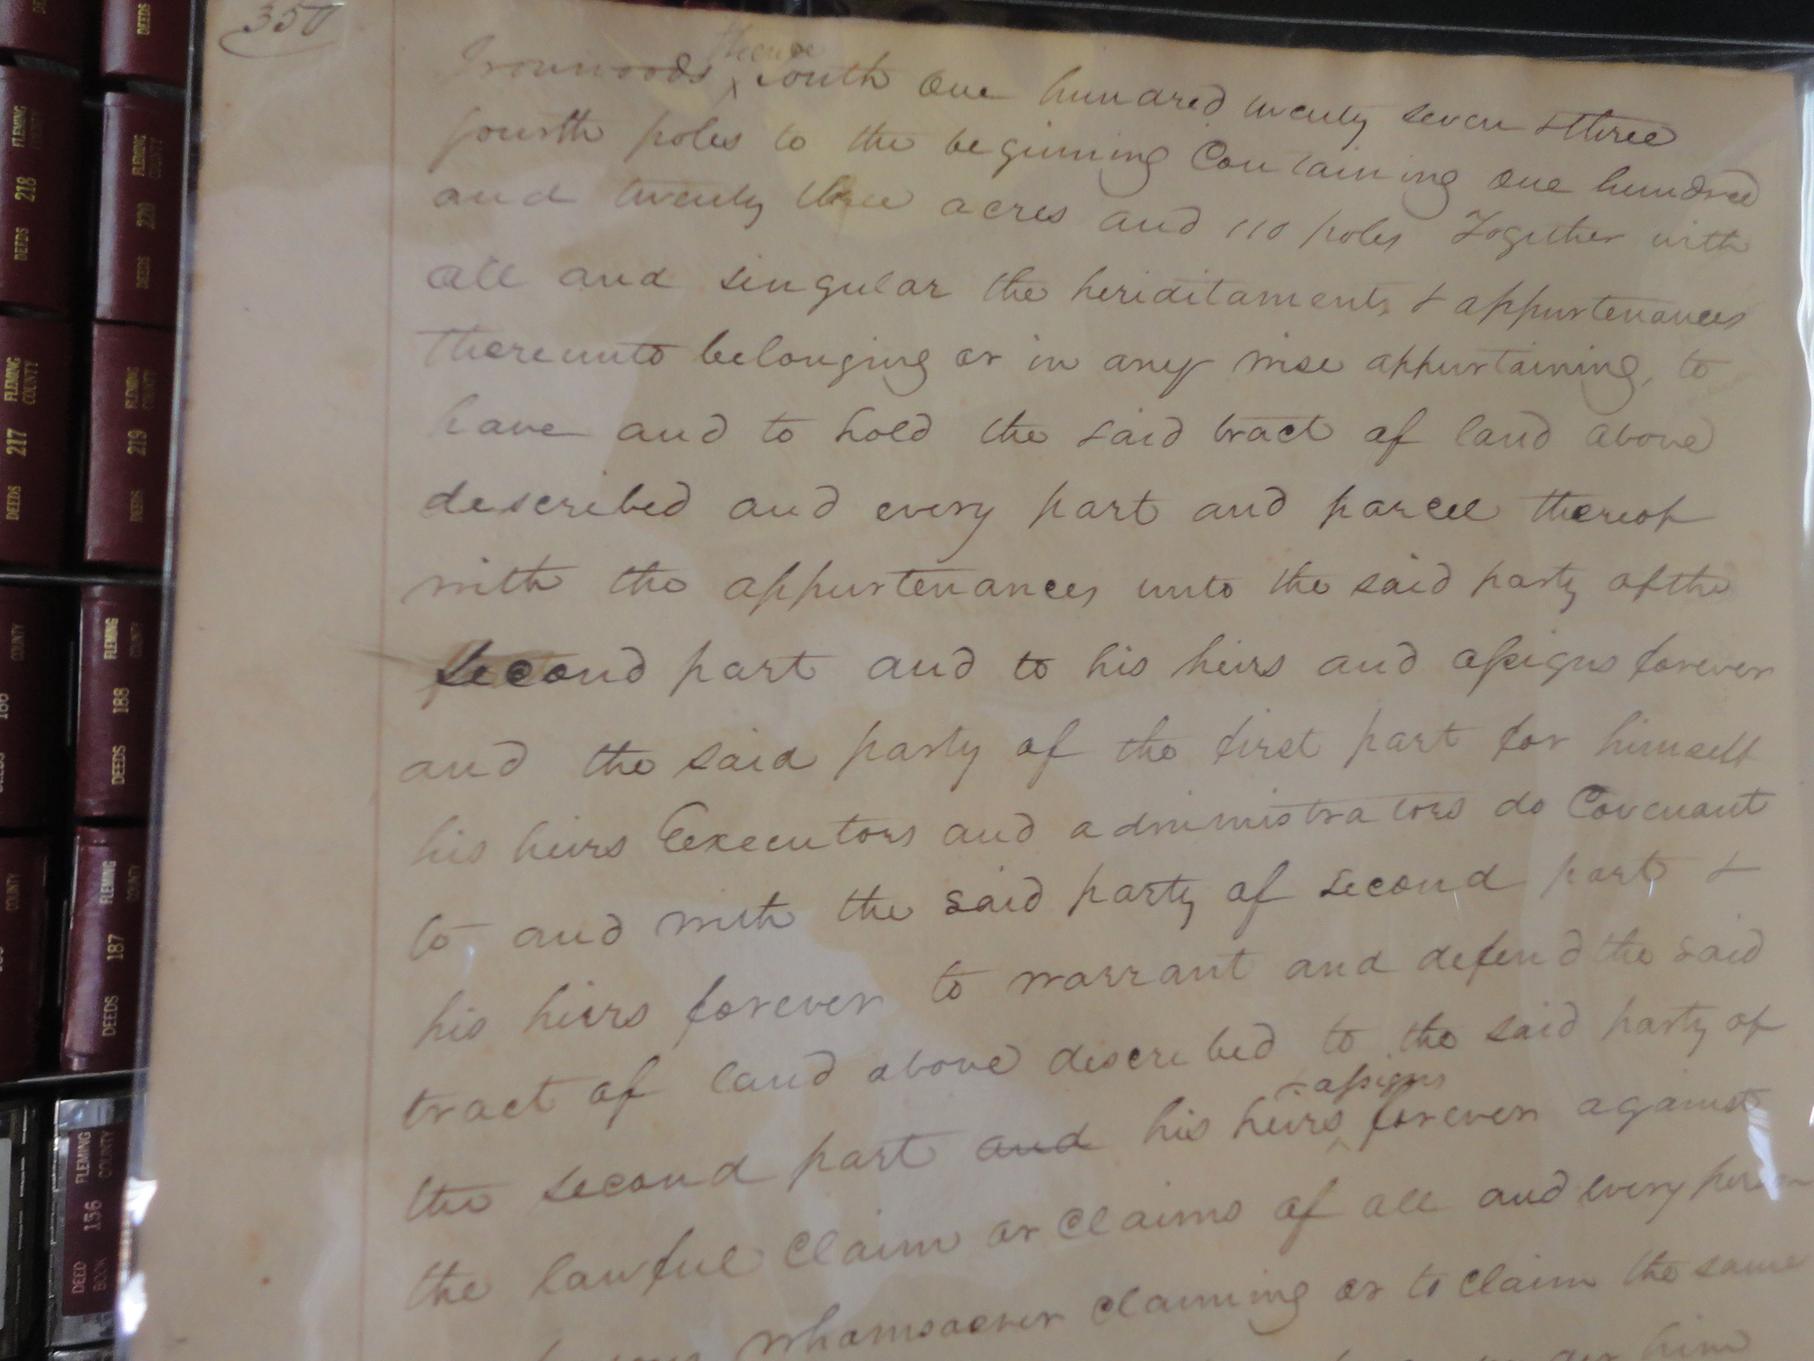 350
Ironwoods thence South One hundred twenty seven & three
fourth poles to the beginning Containing one hundred
and twenty three acres and 110 poles Together with
all and singular the heriditaments & appurtenances
thereunto belonging or in any wise appurtaining, to
have and to hold the said tract of land above
described and every part and parcel thereof
with the appurtenances unto the said party of the
Second part and to his heirs and assigns forever
and the said party of the first part for himself
his heirs Executors and administrators do Covenant
to and with the said party of second part &
his heirs forever to warrant and defend the said
tract of land above described to the said party of
the second part and his heirs & assigns forever against
the lawful Claim or Claims of all and every person
whomsoever claiming or to Claim the same
him
DEEDS
DEEDS 218 FLEMING COUNTY
DEEDS 220 FLEMING COUNTY
DEEDS 217 FLEMING COUNTY
DEEDS 219 FLEMING COUNTY
COUNTY
DEEDS 188 FLEMING COUNTY
COUNTY
DEEDS 187 FLEMING COUNTY
DEED BOOK 156 FLEMING COUNTY